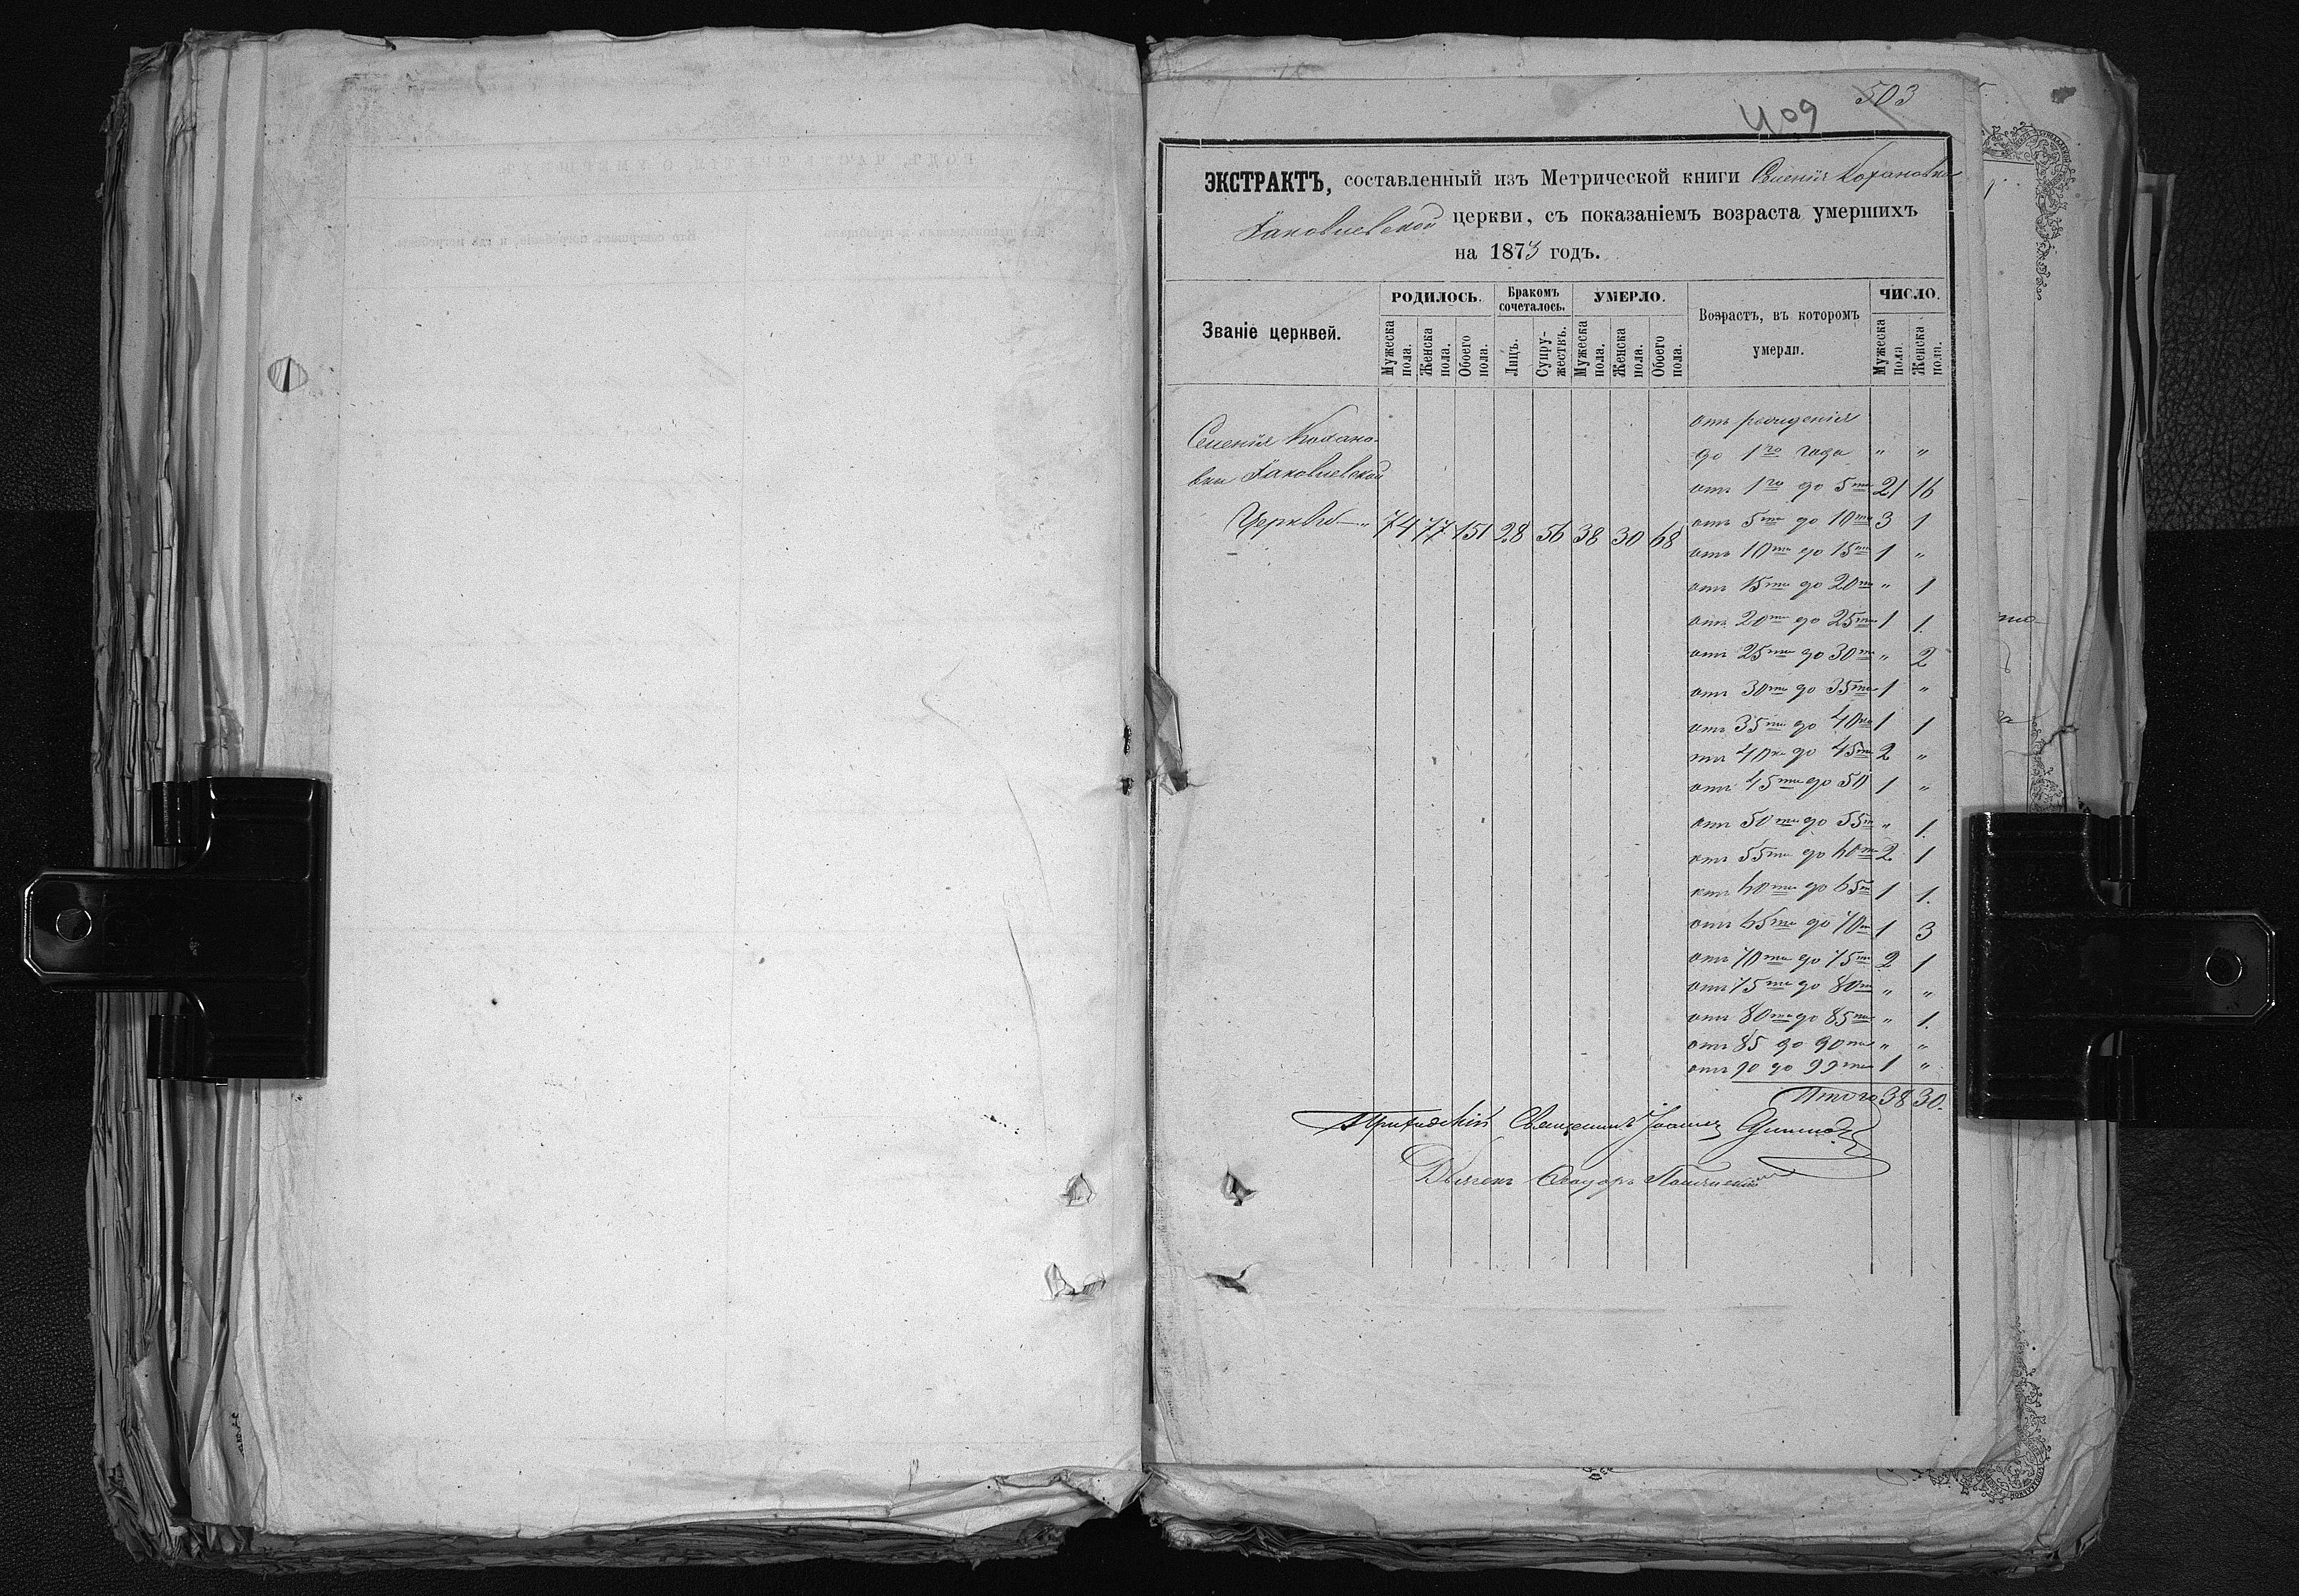 503
409
ЭКСТРАКТЪ, составленный изъ Метрической книги Селенія Кохановки
Іаковлевской церкви, съ показаніемъ возраста умершихъ
на 1873 годъ.
Званіе церквей.
РОДИЛОСЬ.
Мужеска пола.
Женска пола.
Обоего пола.
Бракомъ сочеталось.
Лицъ.
Супружествъ.
УМЕРЛО.
Мужеска пола.
Женска пола.
Обоего пола.
Возрастъ, въ которомъ умерли.
ЧИСЛО.
Мужеска пола.
Женска пола.
Селенія Кохано-
вки Іаковлевской
Церкви — „ 74 77 151 28 56 38 30 68
отъ рожденія
до 1го года „ „
отъ 1го до 5ти 21 16
отъ 5ти до 10ти 3 1
отъ 10ти до 15ти 1 „
отъ 15ти до 20ти „ 1
отъ 20ти до 25ти 1 1.
отъ 25ти до 30ти „ 2
отъ 30ти до 35ти 1 „
отъ 35ти до 40ка 1 1
отъ 40ка до 45ти 2 „
отъ 45ти до 50 1 „
отъ 50ти до 55ти „ 1.
отъ 55ти до 60ти 2 1
отъ 60ти до 65ти 1 1.
отъ 65ти до 70ти 1 3
отъ 70ти до 75ти 2 1
отъ 75ти до 80ти „ „
отъ 80ти до 85ти „ 1.
отъ 85 до 90ти „ „
отъ 90 до 99ти 1 „
Итого 38 30.
Приходскій Священникъ Іоаннъ
Дьячекъ Ѳеодоръ